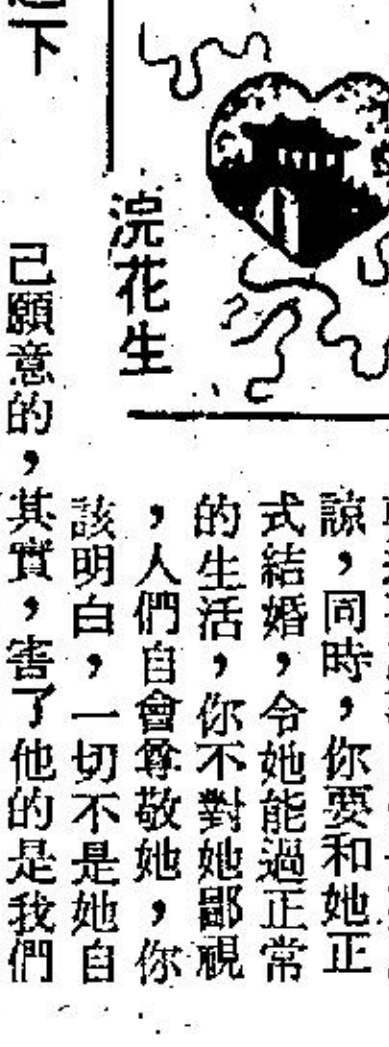 下
浣花生
諒，同時，你要和她正
式結婚，令她能過正常
的生活，你不對她鄙視
，人們自會尊敬她，你
該明白，一切不是她自
己願意的，其實，害了他的是我們